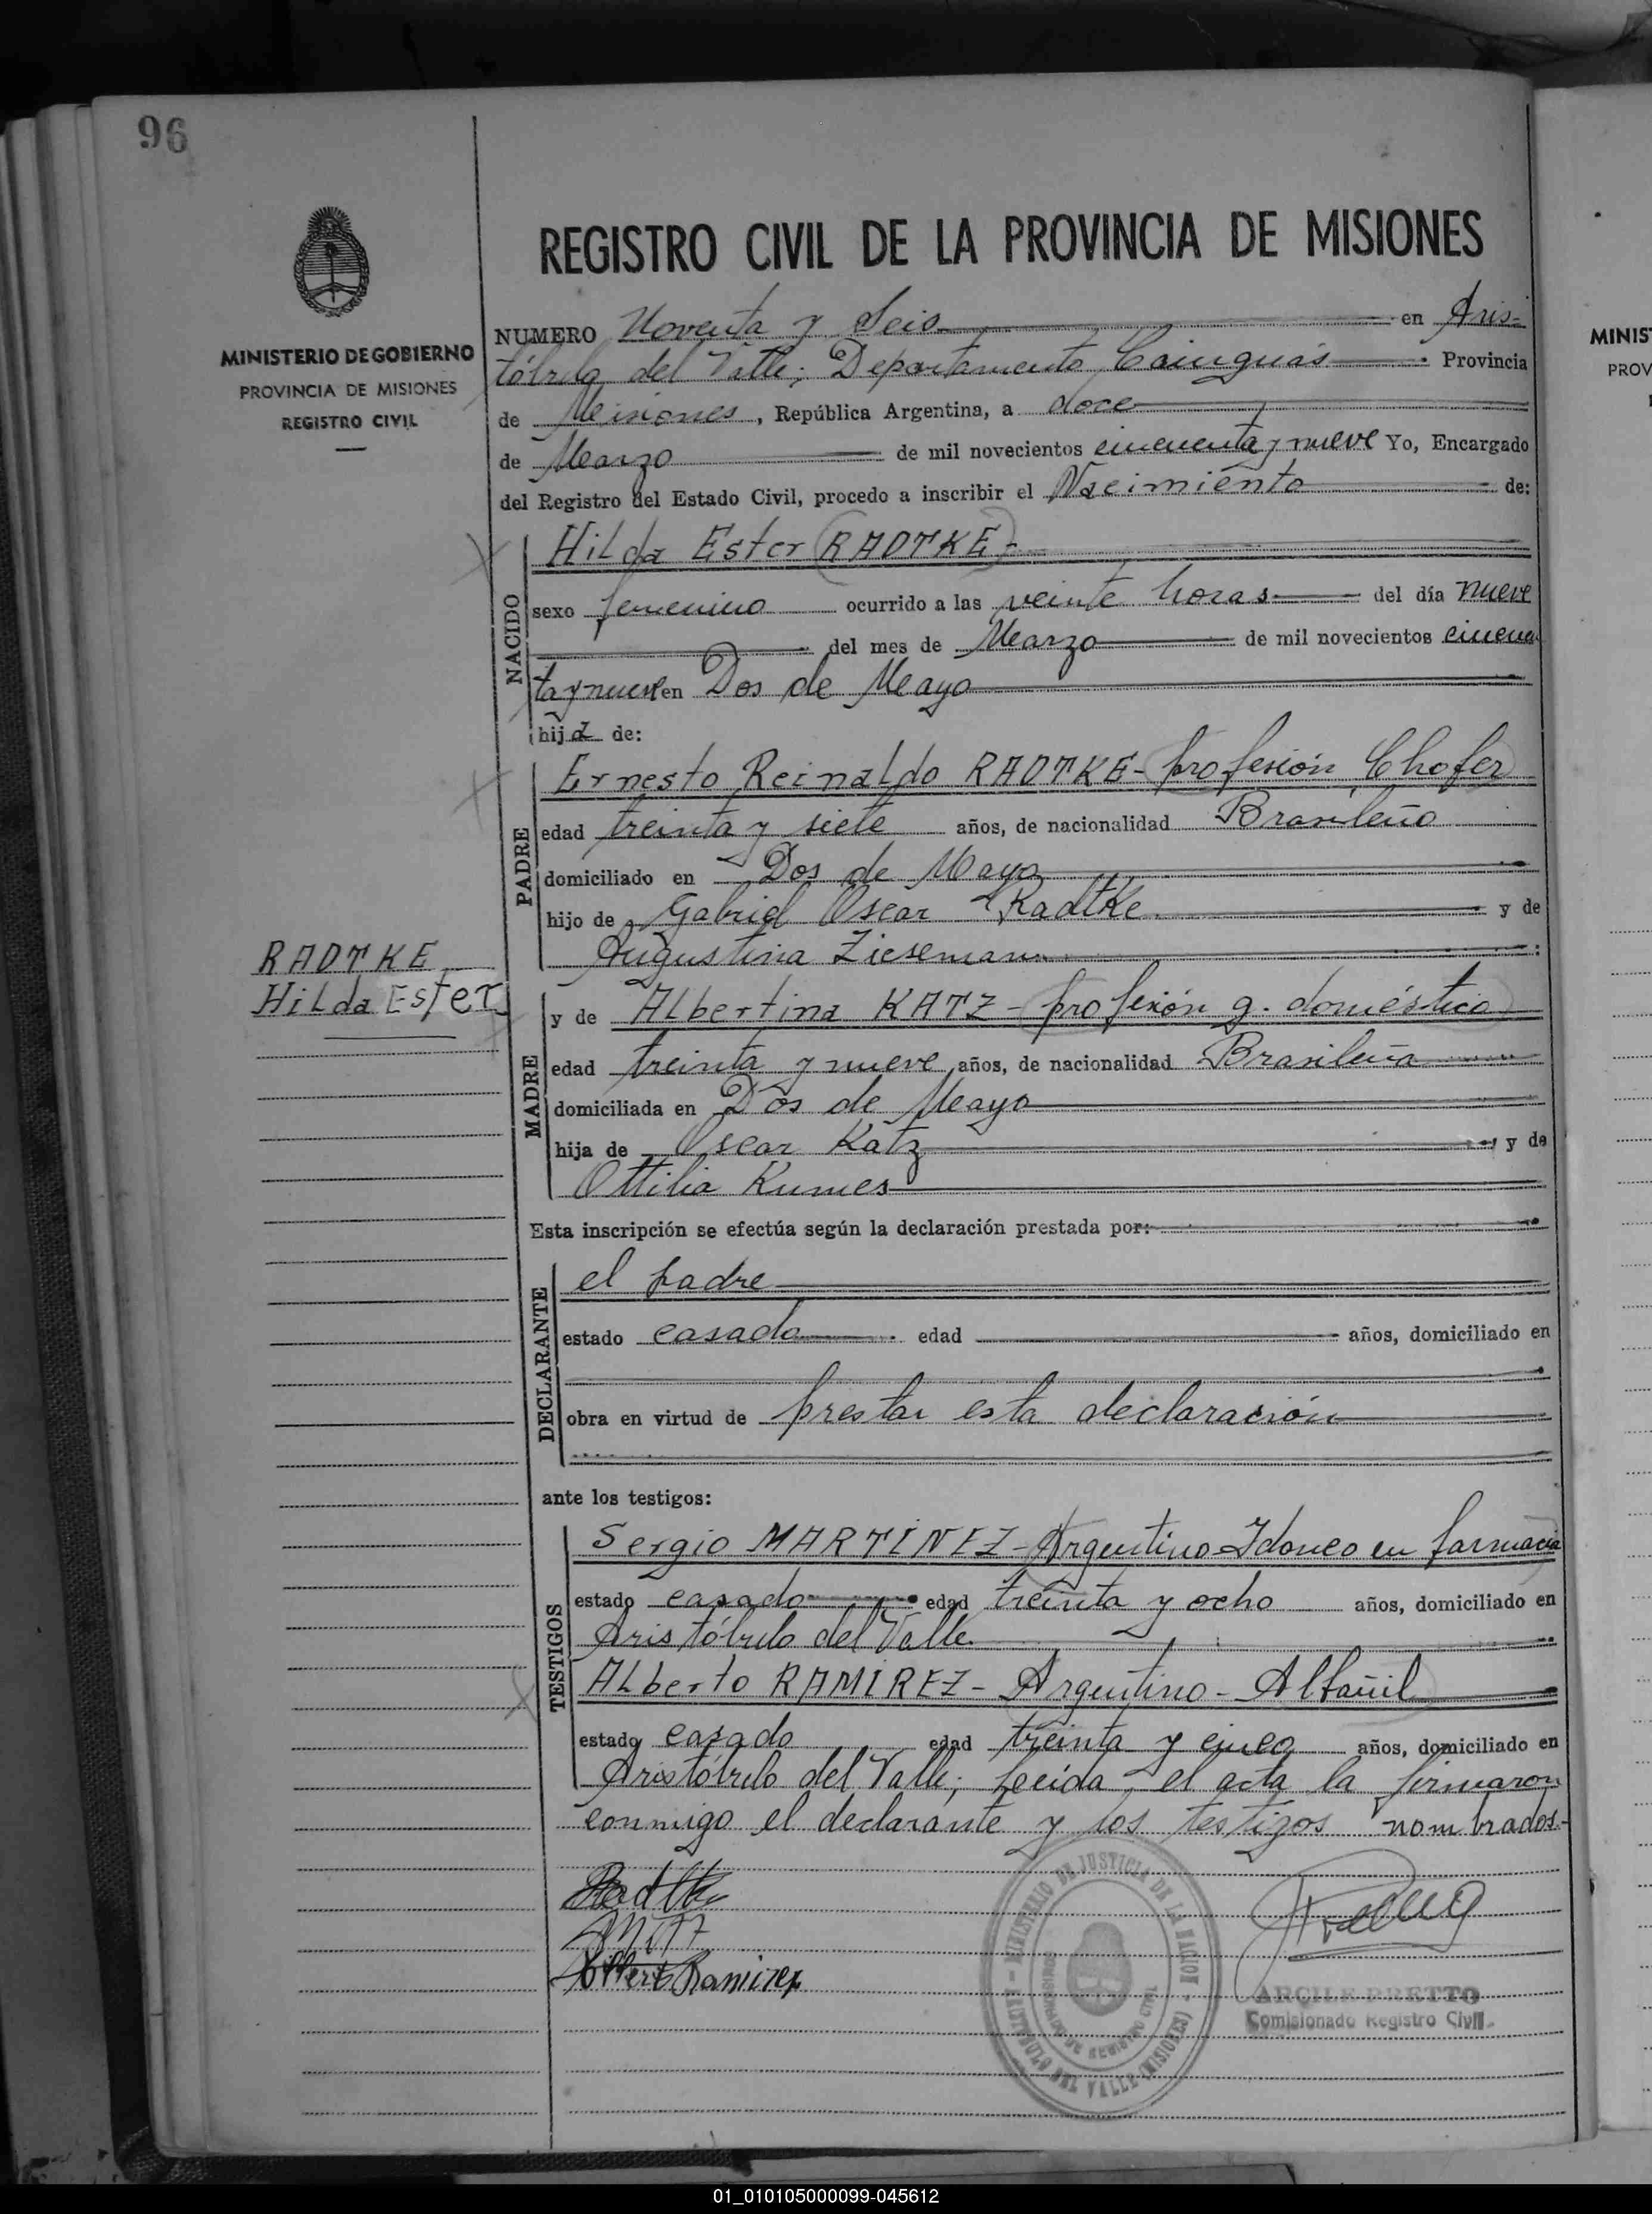 96
REGISTRO CIVIL DE LA PROVINCIA DE MISIONES
MINISTERIO DE GOBIERNO
PROVINCIA DE MISIONES
REGISTRO CIVIL
NUMERO Noventa y Seis en Aris-
tóbulo del Valle; Departamento Cainguás Provincia
de Misiones, República Argentina, a doce
de Marzo de mil novecientos cincuenta y nueve Yo, Encargado
del Registro del Estado Civil, procedo a inscribir el Nacimiento de:
NACIDO
Hilda Ester (RADTKE)-
sexo femenino ocurrido a las veinte horas del día nueve
del mes de Marzo de mil novecientos cincuen
ta y nueve en Dos de Mayo
hija de:
PADRE
Ernesto Reinaldo RADTKE- profesión Chofer
edad treinta y siete años, de nacionalidad Brasileño
domiciliado en Dos de Mayo
hijo de Gabriel Oscar Radtke y de
Augustina Ziesemann
RADTKE
Hilda Ester
MADRE
y de Albertina KATZ - profesión q. doméstica
edad treinta y nueve años, de nacionalidad Brasileña
domiciliada en Dos de Mayo
hija de Oscar Katz y de
Ottilia Kumes
Esta inscripción se efectúa según la declaración prestada por:
DECLARANTE
el padre
estado casado edad años, domiciliado en
obra en virtud de prestar esta declaración
ante los testigos:
TESTIGOS
Sergio MARTINEZ - Argentino - Idoneo en farmacia
estado casado edad treinta y ocho años, domiciliado en
Aristóbulo del Valle.
Alberto RAMIREZ - Argentino - Albañil
estado casado edad treinta y cinco años, domiciliado en
Aristóbulo del Valle; Leída el acta la firmaron
conmigo el declarante y los testigos nombrados.-
Radtke
Alberto Ramirez
MINISTERIO DE JUSTICIA DE LA NACION - ARISTOBULO DEL VALLE (MISIONES)
ARGILE PRETTO
Comisionado Registro Civil.
MINIS
PROV
01_010105000099-045612